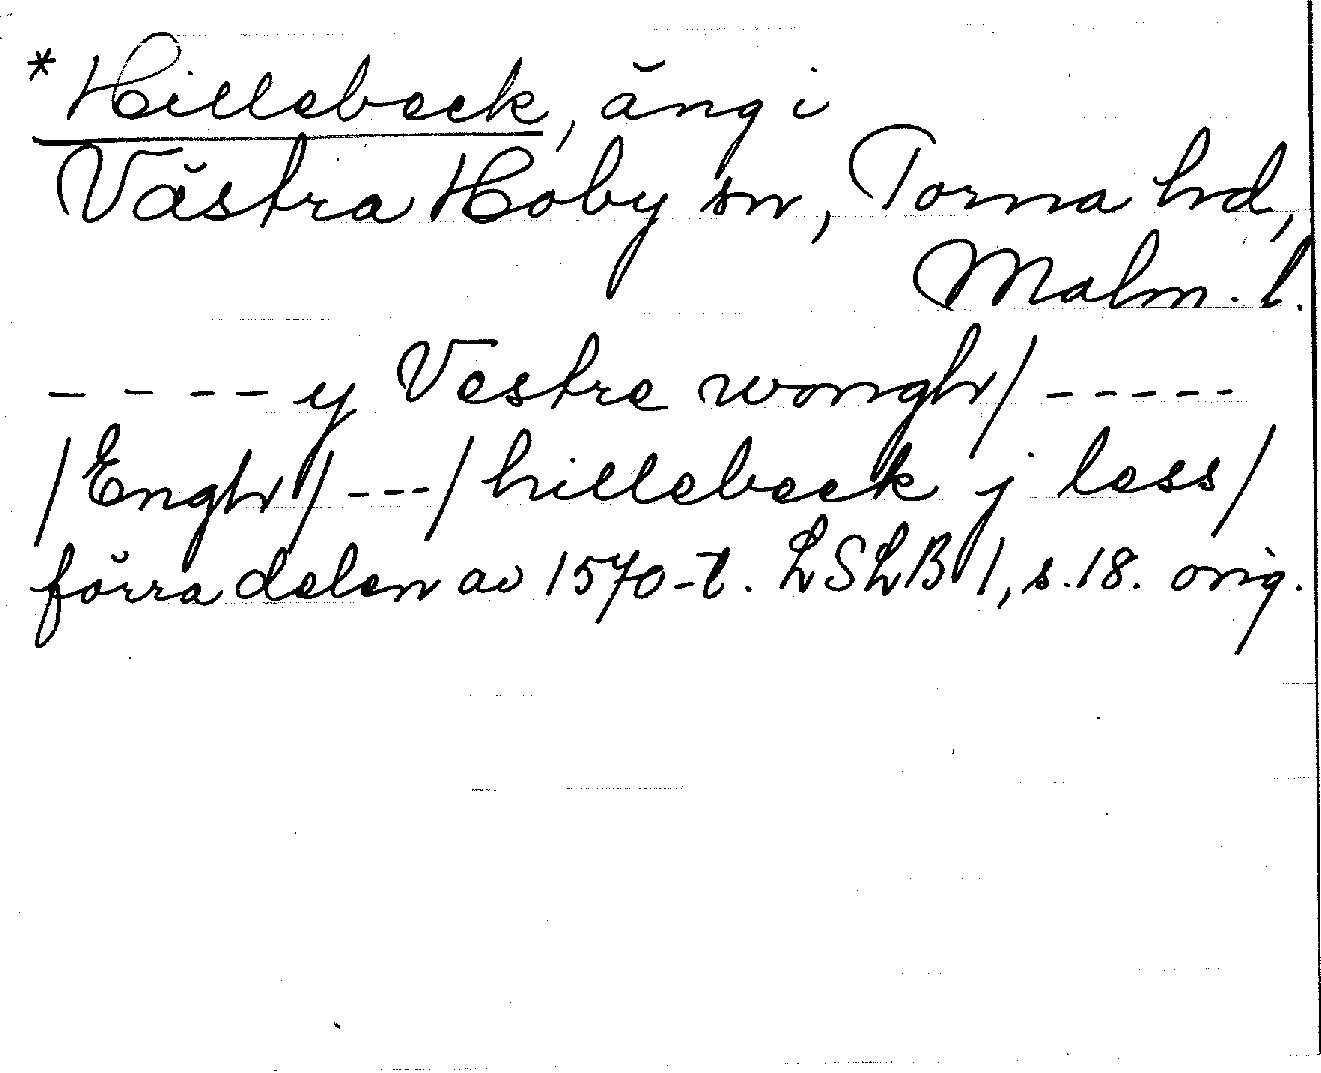 *Hillebeck, äng i
Västra Hoby sn, Torna hd,
Malm. l.
- - - - y Vestre wongh/ - - - - -
/Engh/ - - - / hillebeck j less/
förra delen av 1570-t. LSLB 1, s. 18. orig.